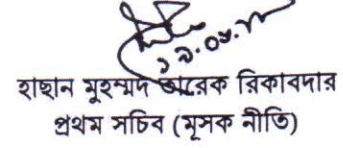 ১৯.০৬.১৮
হাছান মুহম্মদ তারেক রিকাবদার
প্রথম সচিব (মূসক নীতি)